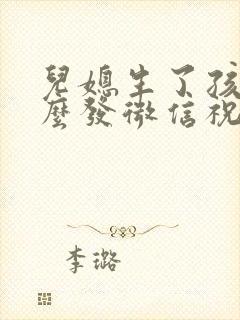 兒媳生了孩
麼發微信祝
李璐